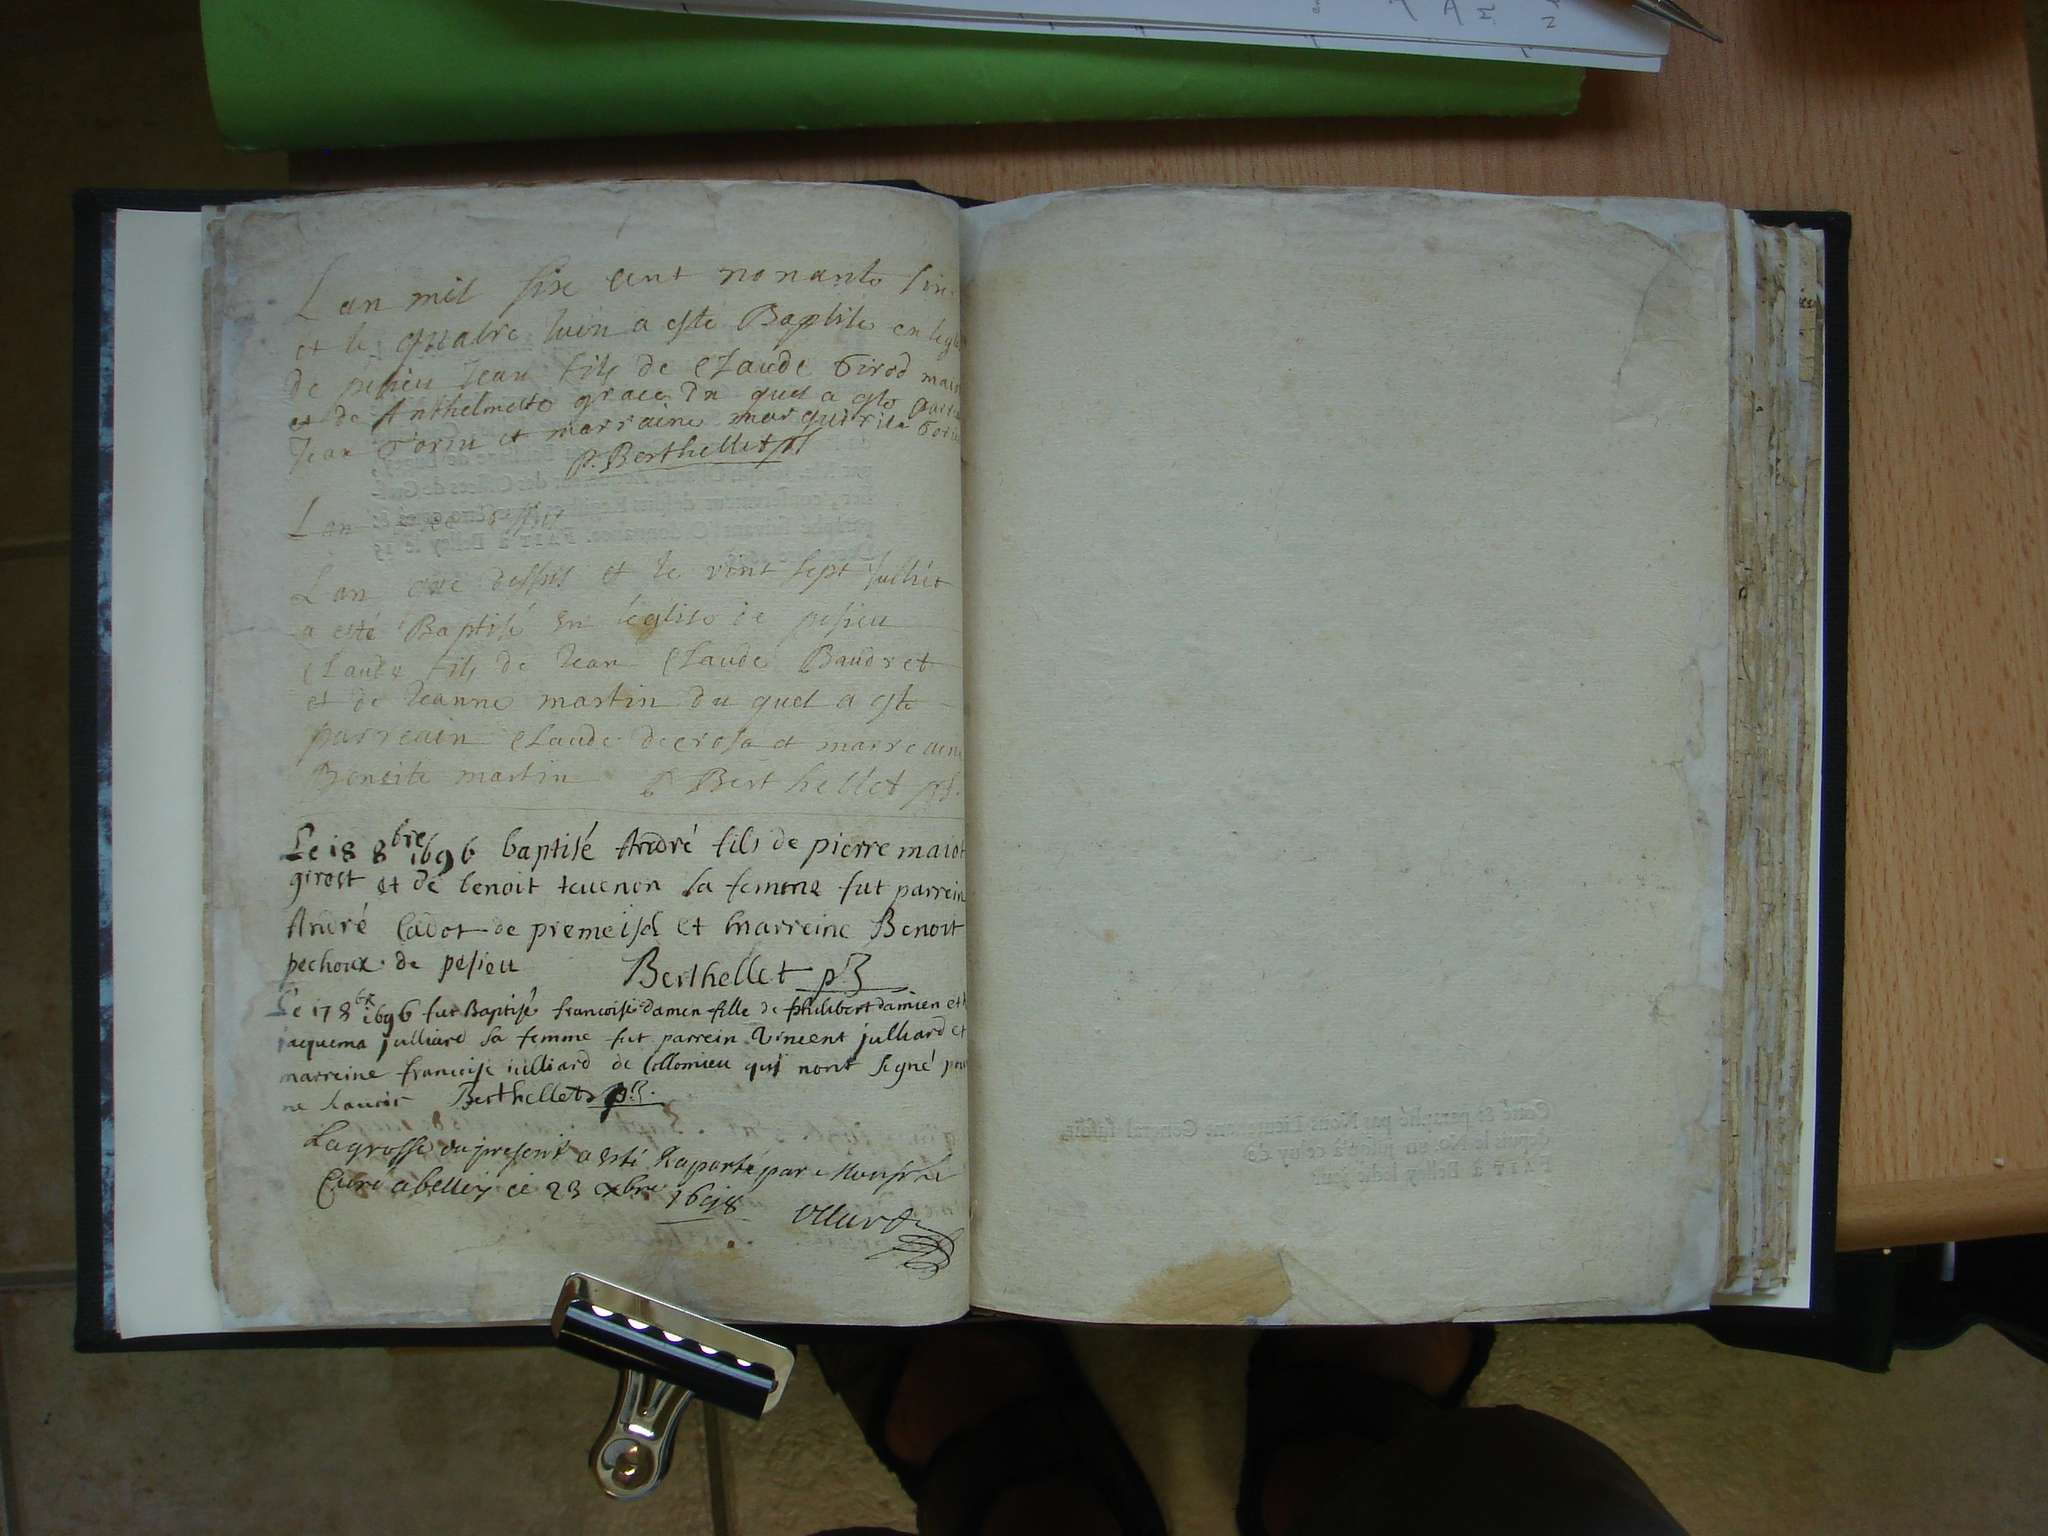 Lan mil six cent nonante six
et le quatre Iuin a este Baptise en legl
de pesieu Jean fils de Claude Girod mai
et de Anthelmette grace Du quel a este par
Jean Gorin et marraine marguerite Gorin
P. Berthellet pb
Lan que dessus
Lan que dessus et le vint sept Juillet
a esté Baptisé en leglise de pesieu
Claude fils de Jean Claude Baudret
et de Jeanne martin du quel a este
parreain Claude decrosa et marreaine
Benoite martin P. Berthellet pb.
Le 18 8bre 1696 baptisé André fils de pierre maiot
girost et de benoit teuenon sa femme fut parrein
André Cadot de premeisel et marreine Benoit
pechoux de pesieu Berthellet pb
Le 17 8bre 1696 fut Baptisé francoise damen fille de philibert damien et
jaquema julliard sa femme fut parrein Vincent julliard et
marreine francoise iulliard de Collomieu qui nont signé pour
ne scauoir Berthellet pb.
La grosse du present a esté Raporté par Monsr le
Curé a belley ce 23 xbre 1698
Cotté & paraphé par Nous Lieutenant General susdit
depuis le No. un jusqu'à celuy de
FAIT à Belley ledit jour